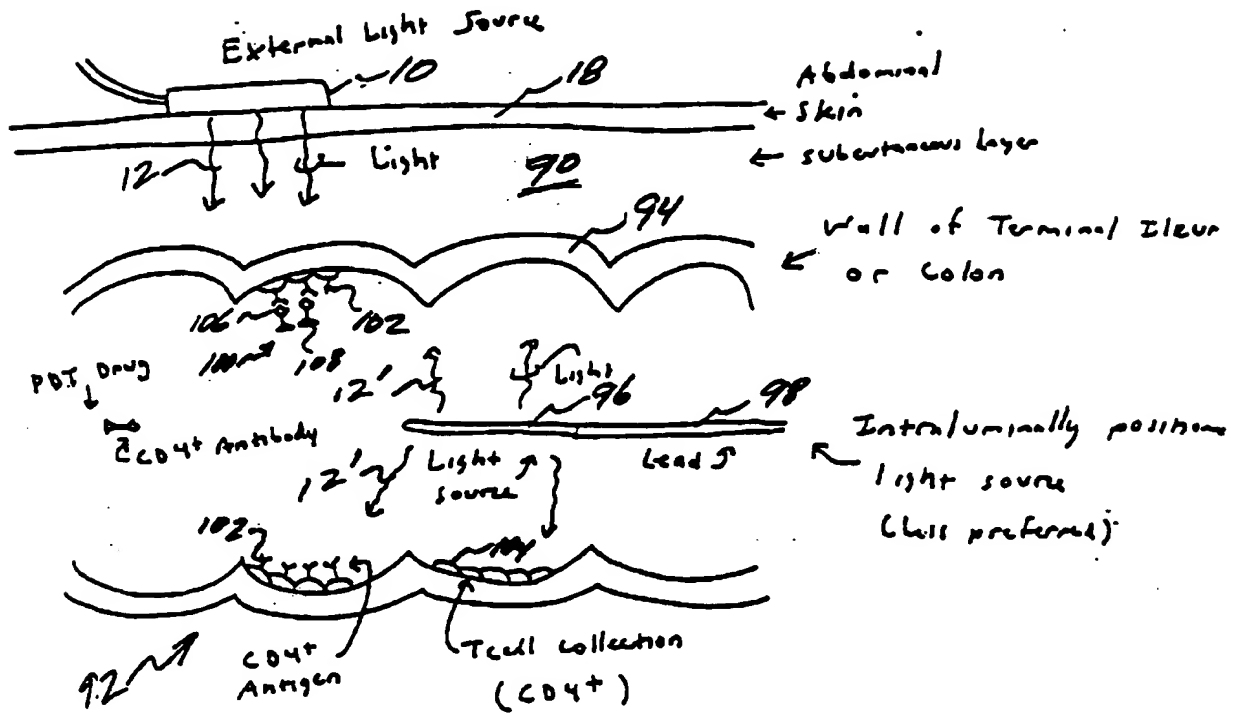 External Light Source
10
18
Abdominal
Skin
subcutaneous layer
12
Light
90
94
Wall of Terminal Ileum
or Colon
106
102
108
PDT Drug
12'
Light
96
98
CD4+ Antibody
Light
source
Lead
Intraluminally positioned
light source
(less preferred)
12'
102
104
CD4+
Antigen
T cell collection
(CD4+)
92